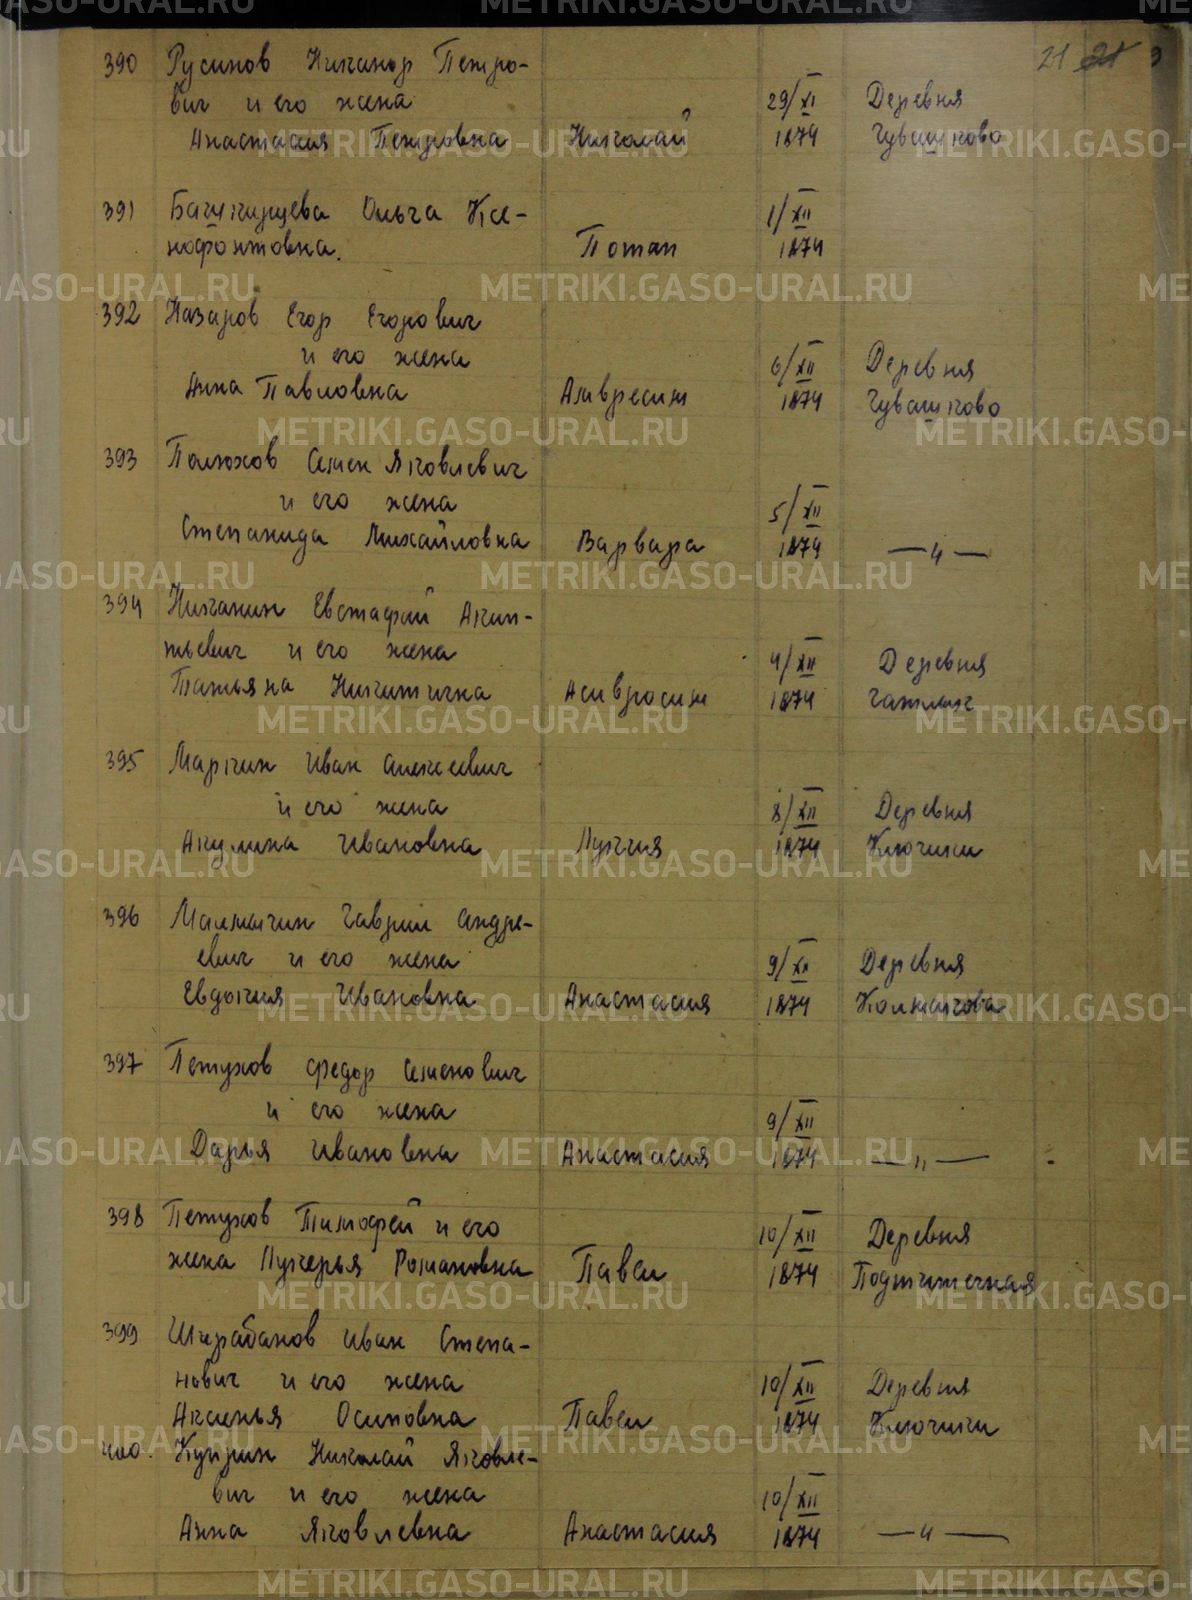 21 21
390 Русинов Никанор Петро-
вич и его жена 29/XI Деревня
Анастасия Петровна Николай 1874 Чувашково
391 Багишищева Ольга Ксе- 1/XII
нофонтовна. Потап 1874
392 Назаров Егор Егорович
и его жена 6/XII Деревня
Анна Павловна Амвросий 1874 Чувашково
393 Полюхов Семен Яковлевич
и его жена 5/XII
Степанида Михайловна Варвара 1874 —"—
394 Никанин Евстафий Акин-
тьевич и его жена 4/XII Деревня
Татьяна Никитична Амвросий 1874
395 Маркин Иван Алексеевич
и его жена 8/XII Деревня
Акулина Ивановна Лукия 1874 Ключики
396 Малмыгин Гаврил Андре-
евич и его жена 9/XII Деревня
Евдокия Ивановна Анастасия 1874 Колмакова
397 Петухов Федор Семенович
и его жена 9/XII
Дарья Ивановна Анастасия 1874 —"—
398 Петухов Тимофей и его 10/XII Деревня
жена Лукерья Романовна Павел 1874
399 Шарабанов Иван Степа-
нович и его жена 10/XII Деревня
Аксенья Осиповна Павел 1874 Ключики
400. Куприн Николай Яковле-
вич и его жена 10/XII
Анна Яковлевна Анастасия 1874 —"—
METRIKI.GASO-URAL.RU